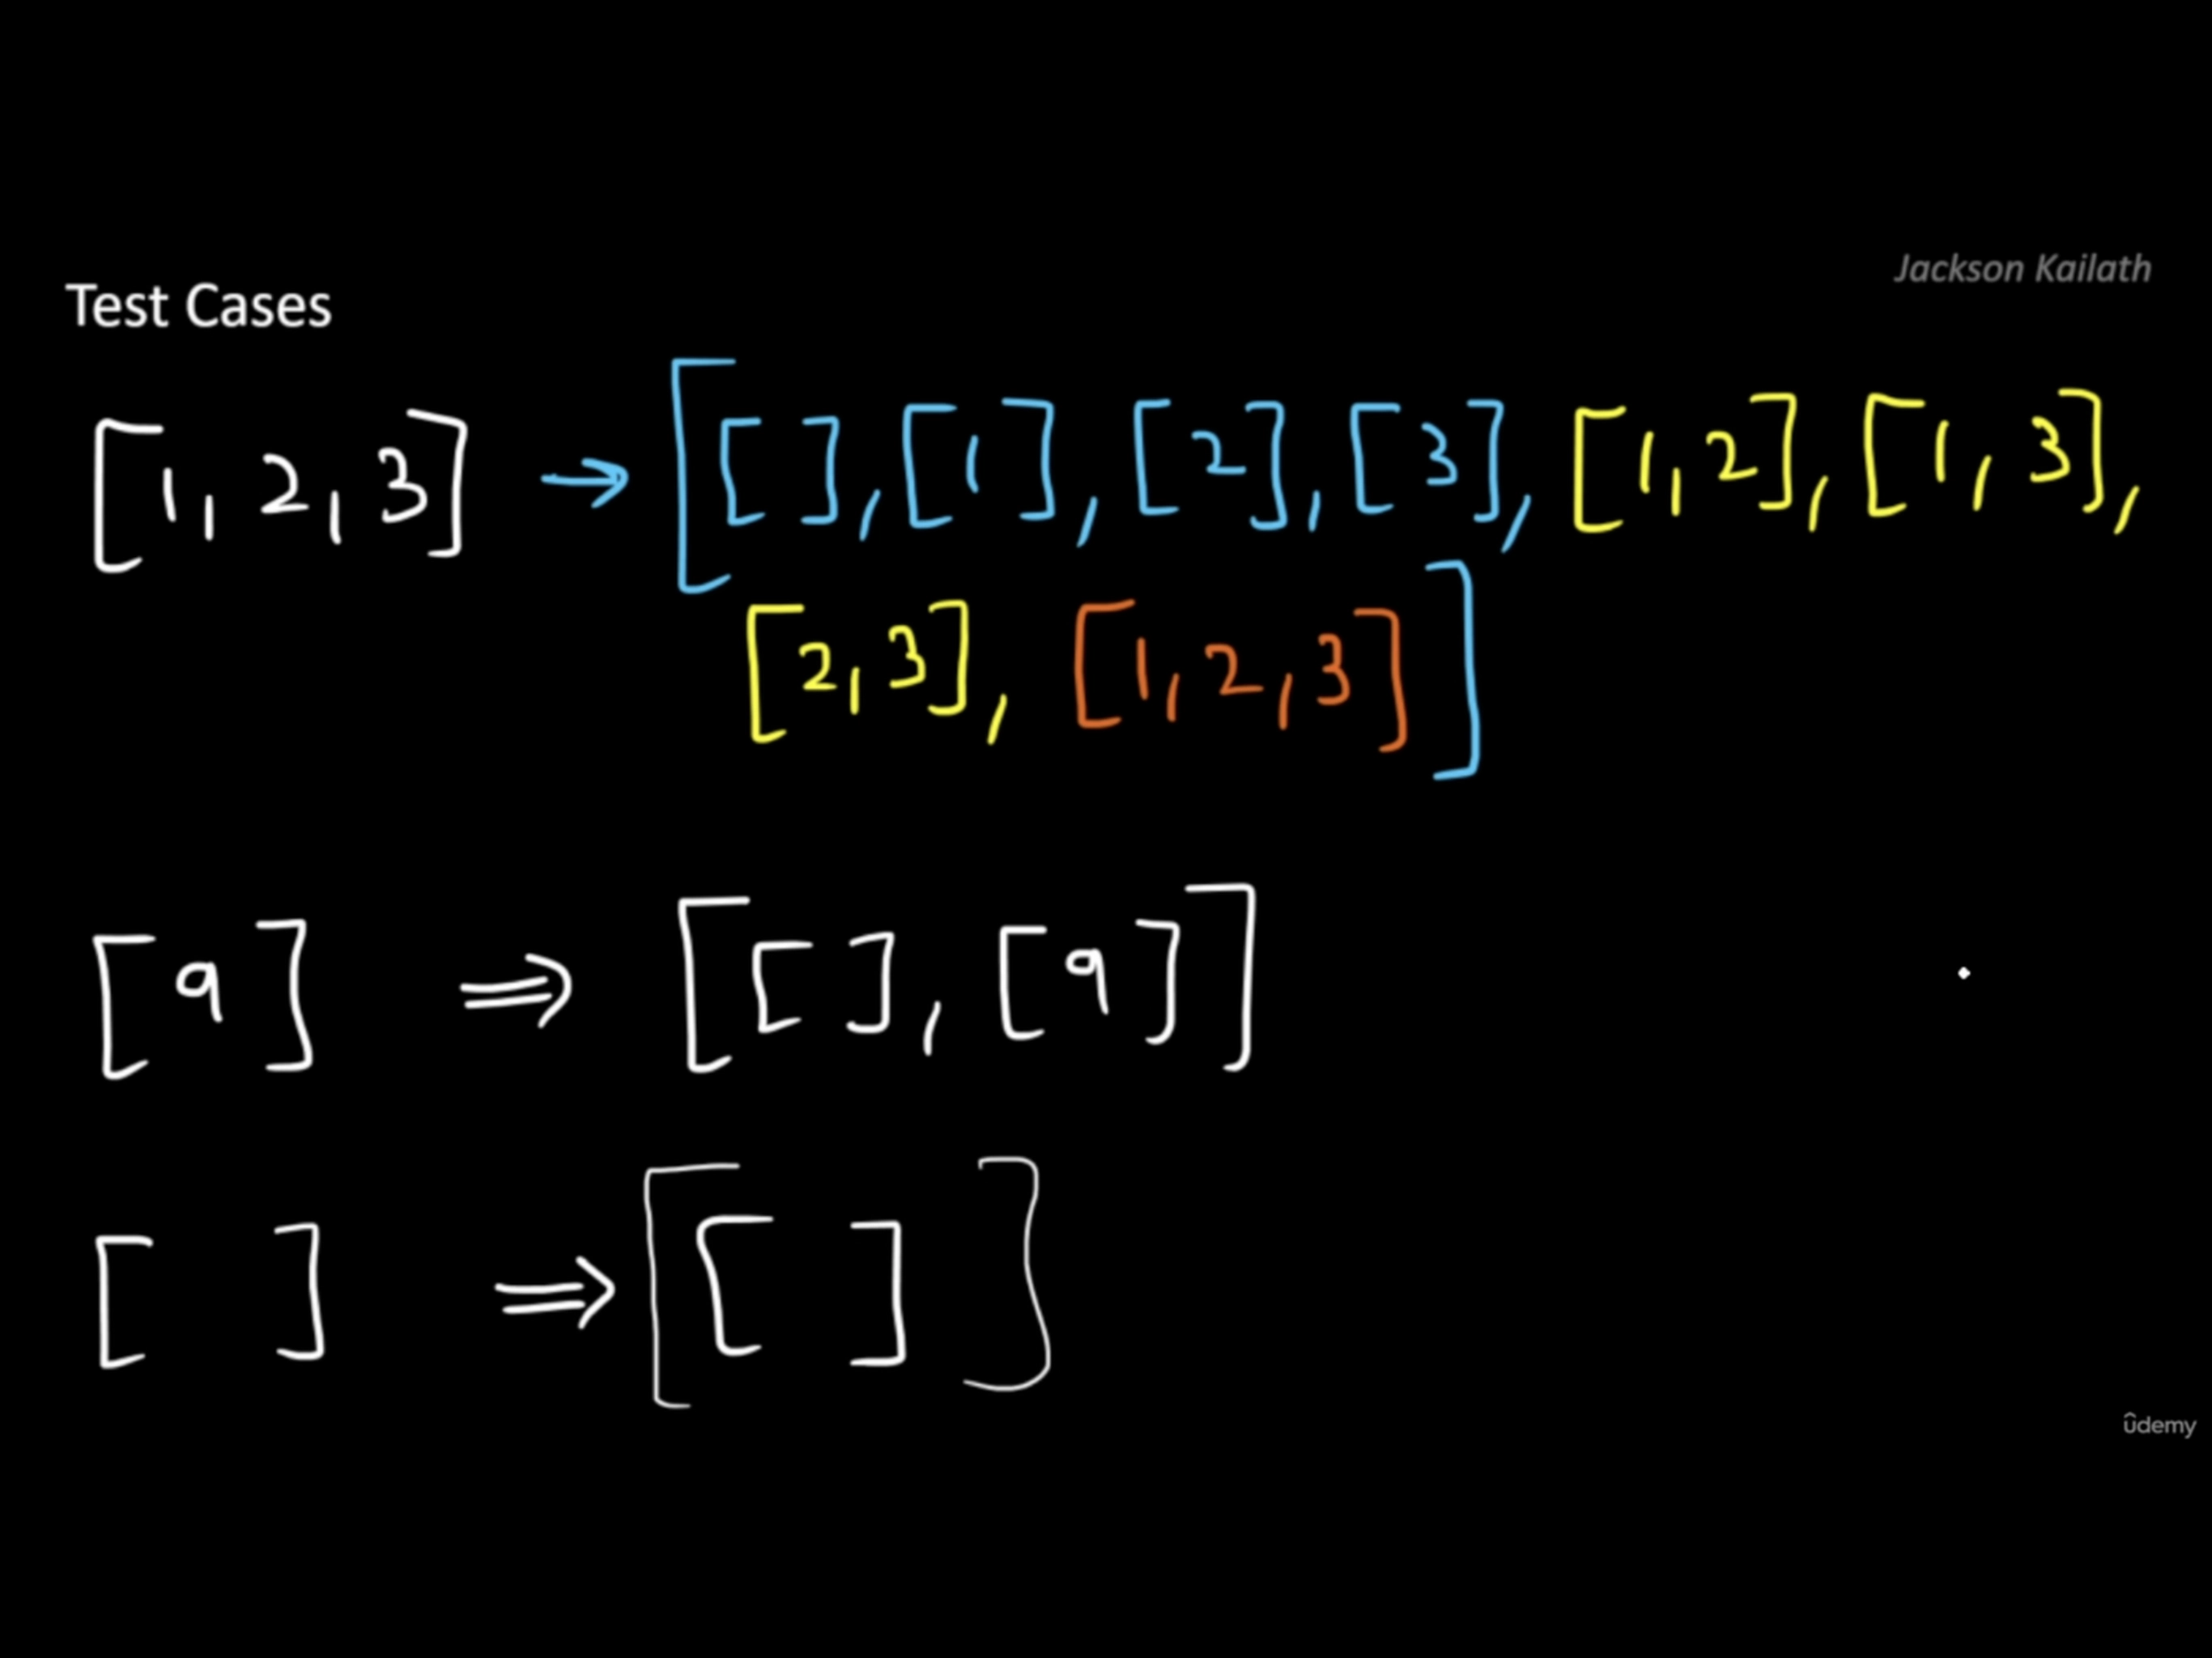 Jackson Kailath
Test Cases
[1, 2, 3] → [[ ], [1], [2], [3], [1, 2], [1, 3],
[2, 3], [1, 2, 3]]
[9] ⇒ [[ ], [9]]
[ ] ⇒ [[ ]]
ûdemy